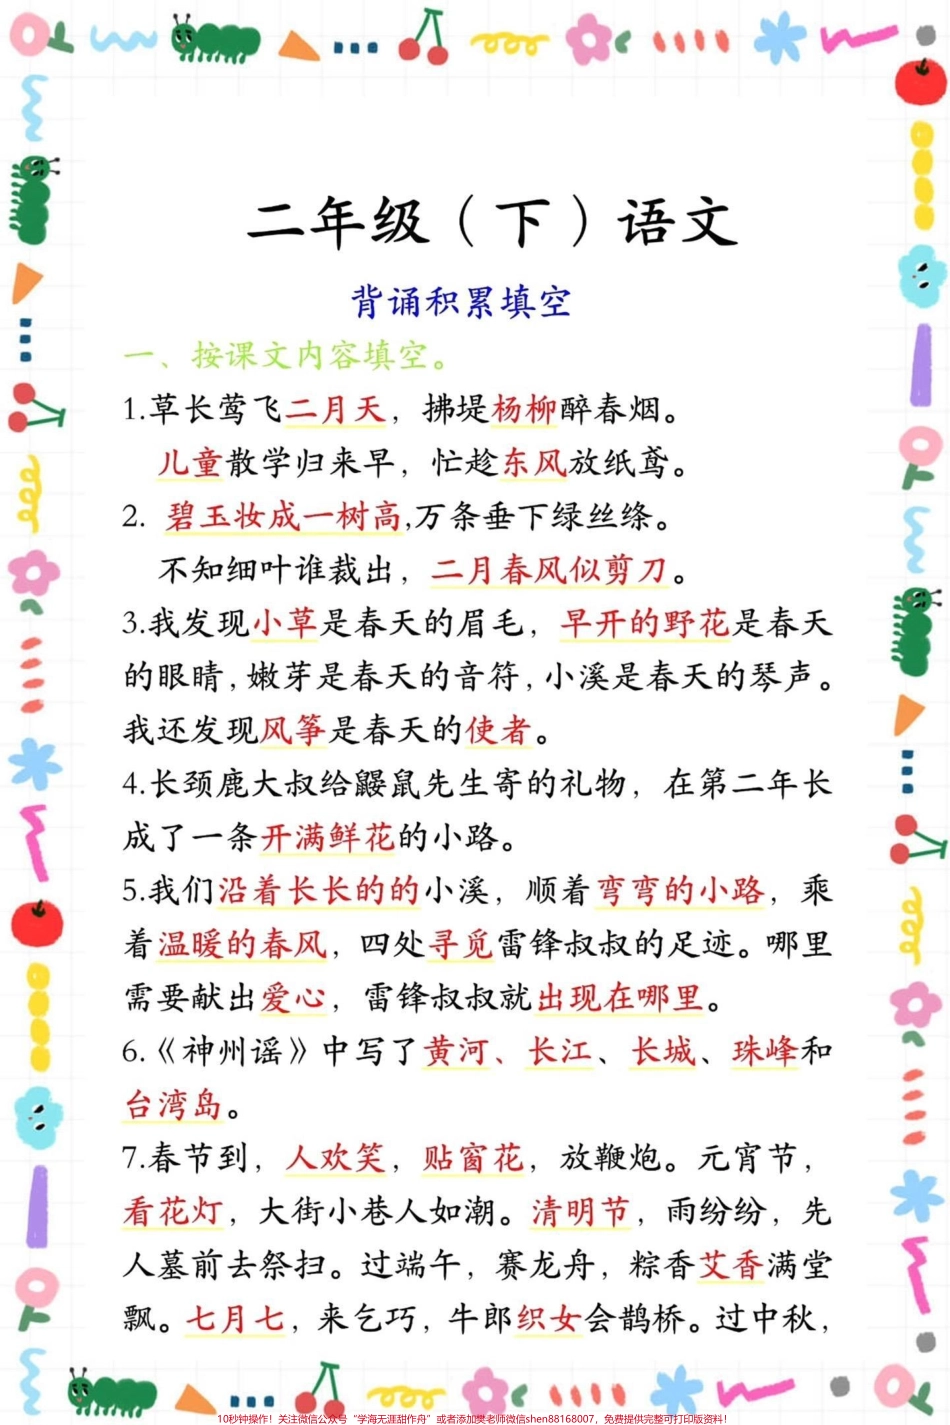 二年级（下）语文
背诵积累填空
一、按课文内容填空。
1.草长莺飞二月天，拂堤杨柳醉春烟。
儿童散学归来早，忙趁东风放纸鸢。
2. 碧玉妆成一树高,万条垂下绿丝绦。
不知细叶谁裁出，二月春风似剪刀。
3.我发现小草是春天的眉毛，早开的野花是春天
的眼睛,嫩芽是春天的音符,小溪是春天的琴声。
我还发现风筝是春天的使者。
4.长颈鹿大叔给鼹鼠先生寄的礼物，在第二年长
成了一条开满鲜花的小路。
5.我们沿着长长的的小溪，顺着弯弯的小路，乘
着温暖的春风，四处寻觅雷锋叔叔的足迹。哪里
需要献出爱心，雷锋叔叔就出现在哪里。
6.《神州谣》中写了黄河、长江、长城、珠峰和
台湾岛。
7.春节到，人欢笑，贴窗花，放鞭炮。元宵节，
看花灯，大街小巷人如潮。清明节，雨纷纷，先
人墓前去祭扫。过端午，赛龙舟，粽香艾香满堂
飘。七月七，来乞巧，牛郎织女会鹊桥。过中秋，
10秒钟操作！关注微信公众号“学海无涯甜作舟”或者添加樊老师微信shen88168007，免费提供完整可打印版资料！